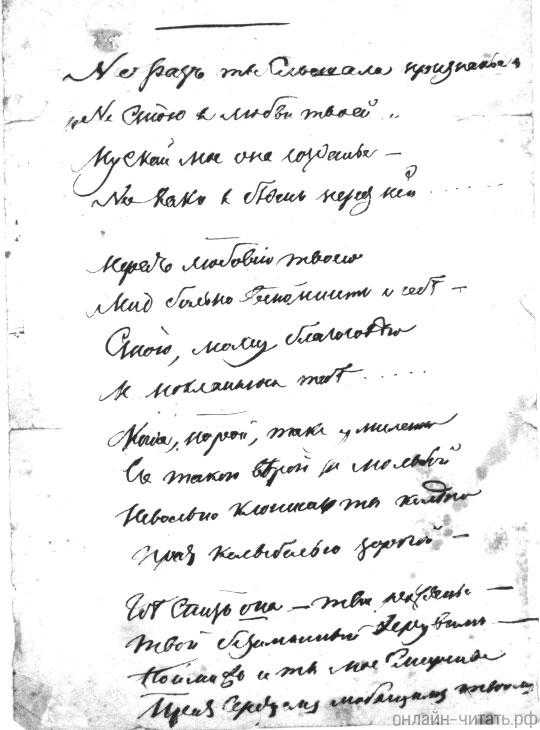 Не разъ ты слышала признанье:
"Не стою я любви твоей".
Пускай мое она созданье –
Но какъ я бѣденъ передъ ней .....
Передъ любовію твоею
Мнѣ больно вспомнить о себѣ –
Стою, молчу, благоговѣю
И поклоняюся тебѣ .....
Когда, порой, такъ умиленно
Съ такою вѣрой и мольбой
Невольно клонишь ты колѣно
Предъ колыбелью дорогой –
Гдѣ спитъ она – твое рожденье –
Твой безыменный Херувимъ –
Пойми жъ и ты мое смиренье
Предъ сердцемъ любящимъ твоимъ
онлайн-читать.рф